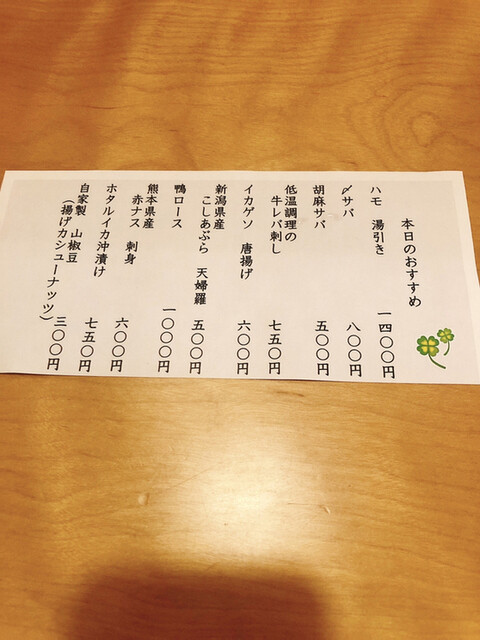 本日のおすすめ
ハモ 湯引き 一四〇〇円
〆サバ 八〇〇円
胡麻サバ 五〇〇円
低温調理の
牛レバ刺し 七五〇円
イカゲソ 唐揚げ 六〇〇円
新潟県産
こしあぶら 天婦羅 五〇〇円
鴨ロース 一〇〇〇円
熊本県産
赤ナス 刺身 六〇〇円
ホタルイカ沖漬け 七五〇円
自家製 山椒豆
(揚げカシューナッツ) 三〇〇円